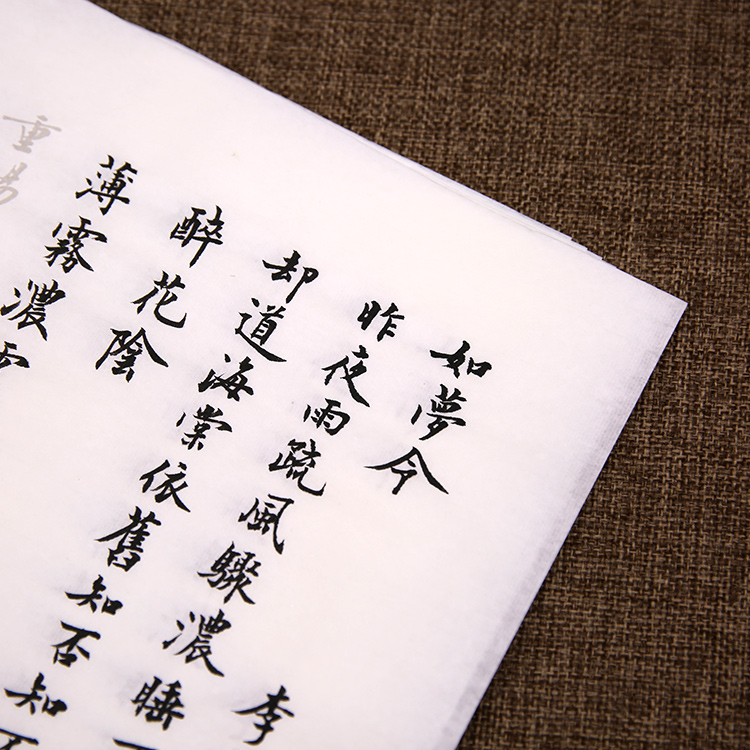 如夢令 李
昨夜雨疏風驟濃睡
却道海棠依舊知否知
醉花陰
薄霧濃
重